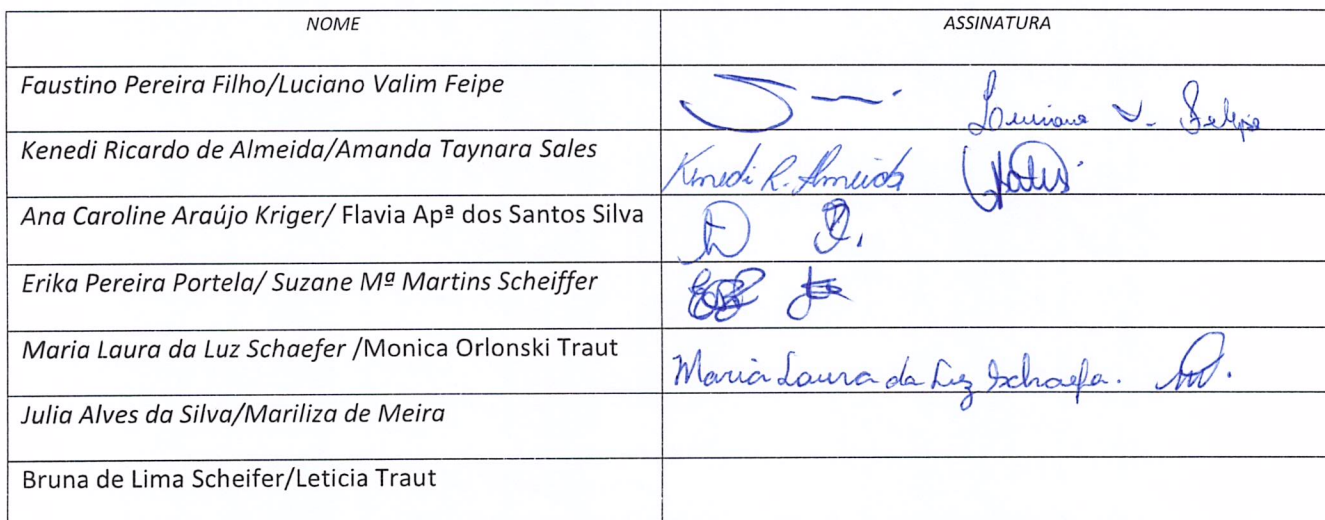 NOME ASSINATURA
Faustino Pereira Filho/Luciano Valim Feipe Luciano V. Felipe
Kenedi Ricardo de Almeida/Amanda Taynara Sales Kenedi R. Almeida
Ana Caroline Araújo Kriger/ Flavia Apª dos Santos Silva
Erika Pereira Portela/ Suzane Mª Martins Scheiffer
Maria Laura da Luz Schaefer /Monica Orlonski Traut Maria Laura da Luz Schaefer.
Julia Alves da Silva/Mariliza de Meira
Bruna de Lima Scheifer/Leticia Traut